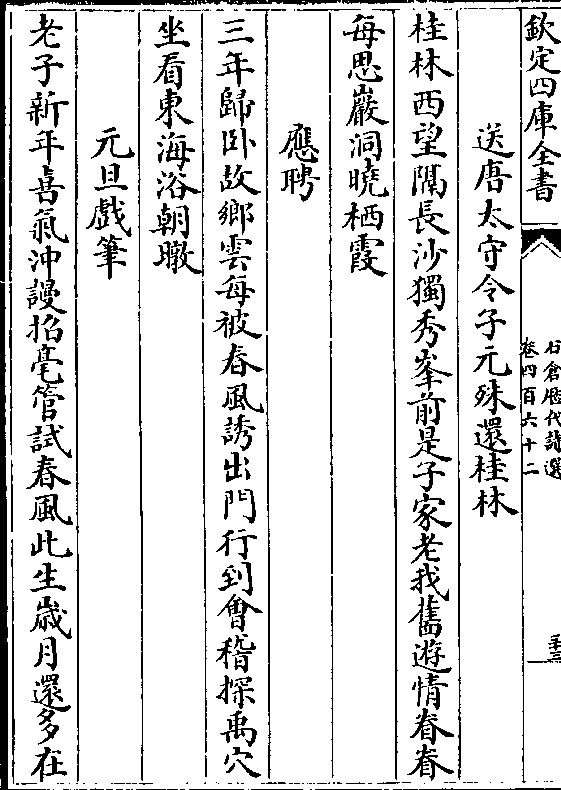 欽定四庫全書
石倉歴代詩選
卷四百六十二
三十三
送唐太守令子元殊還桂林
桂林西望隔長沙獨秀峯前是子家老我舊遊情眷眷
每思巖洞曉栖霞
應聘
三年歸卧故鄉雲每被春風誘出門行到會稽探禹穴
坐看東海浴朝暾
元旦戲筆
老子新年喜氣沖謾拈毫管試春風此生歲月還多在